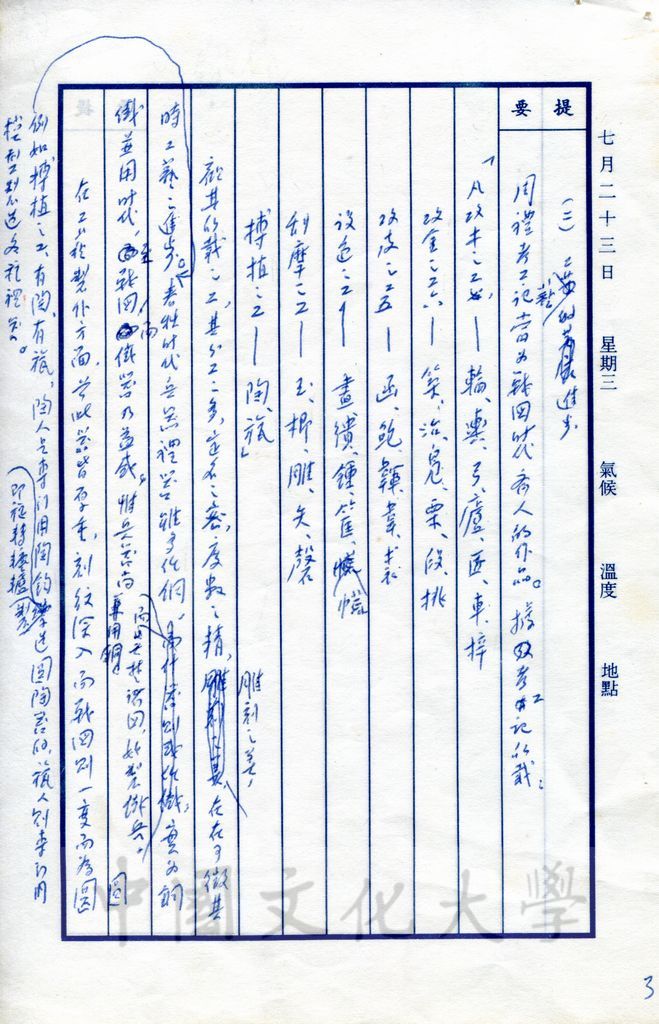 七月二十三日 星期三 氣候 溫度 地點
提要
(二)工藝的進步
周禮考工記當為戰國時代齊人的作品。據考工記所載:
「凡攻木之工七—輪、輿、弓、廬、匠、車、梓
攻金之工六—築、冶、鳧、栗、段、桃
攻皮之工五—函、鮑、韗、韋、裘
設色之工五—畫、繢、鍾、筐、㡛
刮摩之工五—玉、楖、雕、矢、磬
搏埴之工二—陶、瓬」
就其所載之工,其分工之多,定名之密,度數之精,雕刻之美,在在可徵其
時工藝之進步。春秋時代兵器禮器雖多作銅,實為銅
鐵並用時代,至戰國而鐵器乃益盛。惟兵器尚專用銅
而吳楚諸國,始製鐵兵。
在工藝製作方面,當此器皆厚重,刻紋深入而戰國則一變而為圓
例如搏埴之工,有陶,有瓬,陶人是專門用陶鈞製造圓陶器的,瓬人則專門用
模型製造各種禮器。
中國文化大學
3